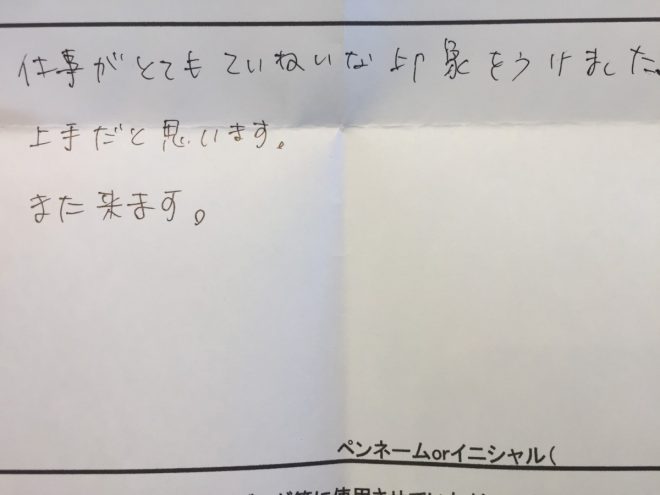 仕事がとてもていねいな印象をうけました。
上手だと思います。
また来ます。
ペンネームorイニシャル(
等に使用させていただ